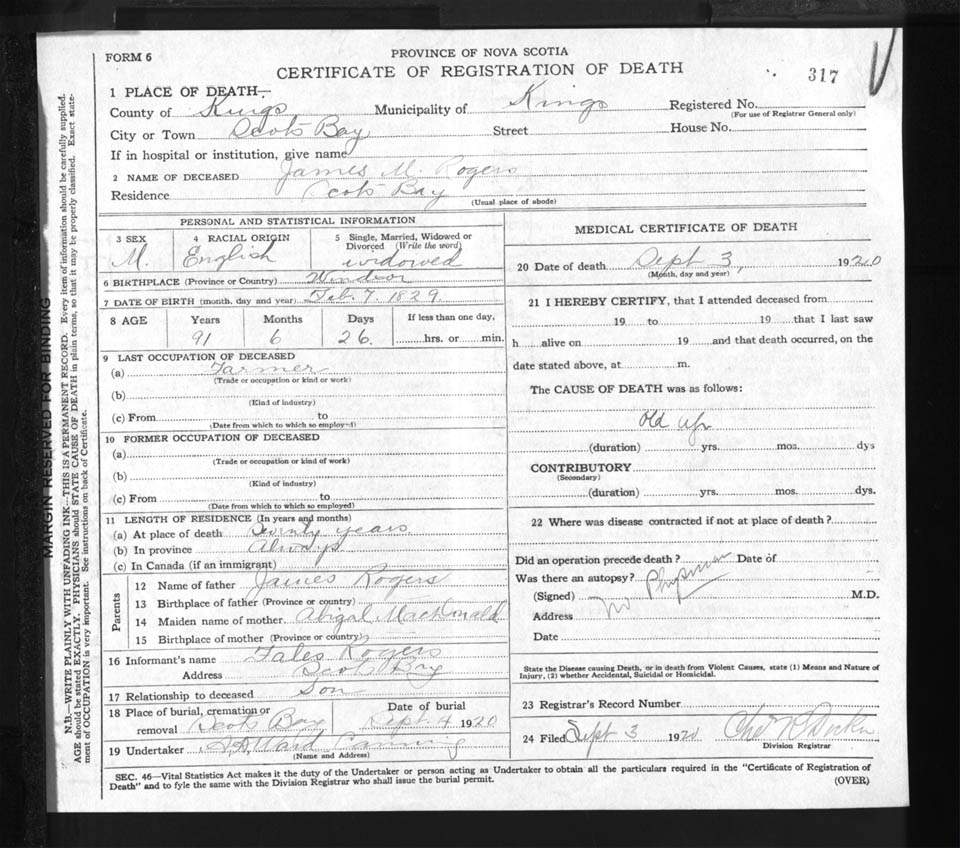 FORM 6
PROVINCE OF NOVA SCOTIA
CERTIFICATE OF REGISTRATION OF DEATH
317
1 PLACE OF DEATH—
County of Kings Municipality of Kings Registered No.
(For use of Registrar General only)
City or Town Scots Bay Street House No.
If in hospital or institution, give name
2 NAME OF DECEASED James M. Rogers
Residence Scots Bay
(Usual place of abode)
PERSONAL AND STATISTICAL INFORMATION
3 SEX 4 RACIAL ORIGIN 5 Single, Married, Widowed or
Divorced (Write the word)
M. English widowed
6 BIRTHPLACE (Province or Country) Windsor
7 DATE OF BIRTH (month, day and year) Feb. 7. 1829.
8 AGE Years Months Days If less than one day,
91 6 26. hrs. or min.
9 LAST OCCUPATION OF DECEASED
(a) Farmer
(Trade or occupation or kind or work)
(b)
(Kind of industry)
(c) From to
(Date from which to which so employ-d)
10 FORMER OCCUPATION OF DECEASED
(a)
(Trade or occupation or kind of work)
(b)
(Kind of industry)
(c) From to
(Date from which to which so employed)
11 LENGTH OF RESIDENCE (In years and months)
(a) At place of death years
(b) In province Always
(c) In Canada (if an immigrant)
Parents
12 Name of father James Rogers
13 Birthplace of father (Province or country)
14 Maiden name of mother Abigal MacDonald
15 Birthplace of mother (Province or country)
16 Informant's name Fales Rogers
Address Scots Bay
17 Relationship to deceased Son
18 Place of burial, cremation or Date of burial
removal Scots Bay Sept. 4 1920
19 Undertaker Ward Canning
(Name and Address)
MEDICAL CERTIFICATE OF DEATH
20 Date of death Sept 3, 1920
(Month, day and year)
21 I HEREBY CERTIFY, that I attended deceased from
19 to 19 that I last saw
h alive on 19 and that death occurred, on the
date stated above, at m.
The CAUSE OF DEATH was as follows:
Old age
(duration) yrs. mos. dys
CONTRIBUTORY
(Secondary)
(duration) yrs. mos. dys.
22 Where was disease contracted if not at place of death?
Did an operation precede death? Date of
Was there an autopsy?
(Signed) No Physician M.D.
Address
Date
State the Disease causing Death, or in death from Violent Causes, state (1) Means and Nature of
Injury, (2) whether Accidental, Suicidal or Homicidal.
23 Registrar's Record Number
24 Filed Sept 3 1920
Division Registrar
SEC. 46—Vital Statistics Act makes it the duty of the Undertaker or person acting as Undertaker to obtain all the particulars required in the "Certificate of Registration of
Death" and to fyle the same with the Division Registrar who shall issue the burial permit.
(OVER)
MARGIN RESERVED FOR BINDING
N.B.—WRITE PLAINLY WITH UNFADING INK—THIS IS A PERMANENT RECORD. Every item of information should be carefully supplied.
AGE should be stated EXACTLY. PHYSICIANS should STATE CAUSE OF DEATH in plain terms, so that it may be properly classified. Exact state-
ment of OCCUPATION is very important. See instructions on back of Certificate.